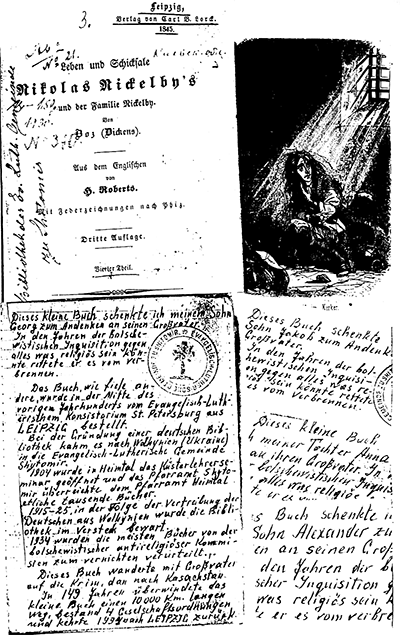 3.
Leipzig,
Verlag von Carl B. Lorck.
1845.
No 21.
Leben und Schicksale
Nikolas Nickelby's
und der Familie Nickelby.
Von
Boz (Dickens).
Aus dem Englischen
von
H. Roberts.
Mit Federzeichnungen nach Phiz.
Dritte Auflage.
Vierter Theil.
Bibliothek der Ev. Luth. Gemeinde
zu Shitomir
Dieses kleine Buch schenkte ich meinem Sohn
Georg zum Andenken an seinen Großvater.
In den Jahren der bolsche-
wistischen Inquisition gegen
alles was religiös sein kön-
nte rettete er es vom ver-
brennen.
Das Buch, wie viele an-
dere, wurde in der Mitte des
vorigen Jahrhunderts vom Evangelisch-Luth-
erischem Konsistorium St. Petersburg aus
LEIPZIG bestellt.
Bei der Gründung einer deutschen Bib-
liothek kahm es nach Wolhynien (Ukraine)
in die Evangelisch-Lutherische Gemeinde
Shytomir.
1907 wurde in Heimtal das Küsterlehrerse-
minar geöffnet und das Pfarramt Shyto-
mir überreichte dem Pfarramt Heimtal
etliche Tausende Bücher.
1915-25, in der Folge der Vertreibung der
Deutschen aus Wolhynien wurde die Bibli-
othek im Verstek bewart.
1934 wurden die meisten Bücher von der
bolschewistischer antireligiöser Kommis-
sien zum vernichten verurteilt.
Dieses Buch wanderte mit Großvater
auf die Krim, dan nach Kasachstan.
In 149 Jahren überwindete das
kleine Buch einen 10000 Km. langen
Weg, bestand 4 Gesellschaftordnungen
und kehrte 1994 nach LEIPZIG zurück.
Dieses Buch schenkte
Sohn Jakob zum Andenk
Großvater.
In den Jahren der bol-
schewistischen Inquisi-
on gegen alles was reli-
giös sein könnte rettete
es vom verbrennen.
Dieses kleine B
h meiner Tochter Anna
an ihren Großvater. In
bolschewistischen Inquis
alles was religiös
te er es
s Buch schenkte i
Sohn Alexander zu
en an seinen Groß
den Jahren der b
scher Inquisition g
was religiös sein
er es vom verbre